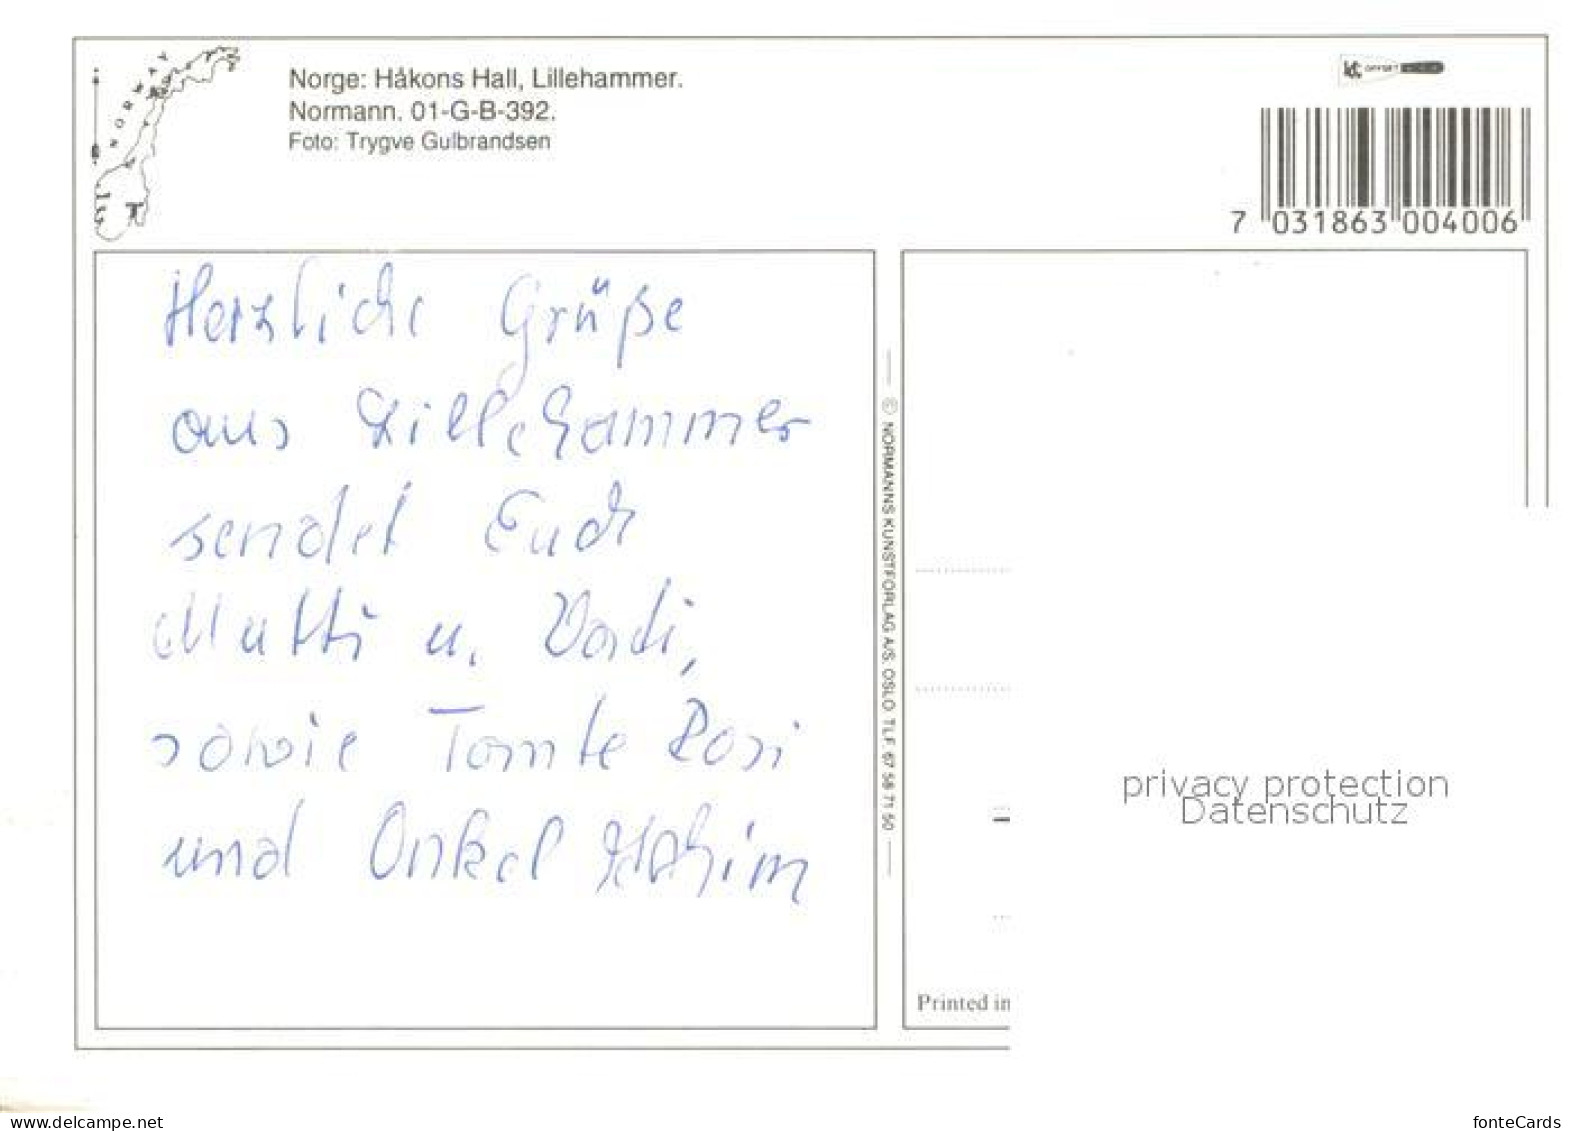 NORWAY
Norge: Håkons Hall, Lillehammer.
Normann. 01-G-B-392.
Foto: Trygve Gulbrandsen
OFFSET
7 031863 004006
Herzliche Grüße
aus Lillehammer
sendet Euch
Mutti u. Vati,
sowie Tante Rosi
und Onkel
© NORMANNS KUNSTFORLAG A/S. OSLO. TLF. 67 58 71 50
privacy protection
Datenschutz
Printed in
www.delcampe.net
fonteCards